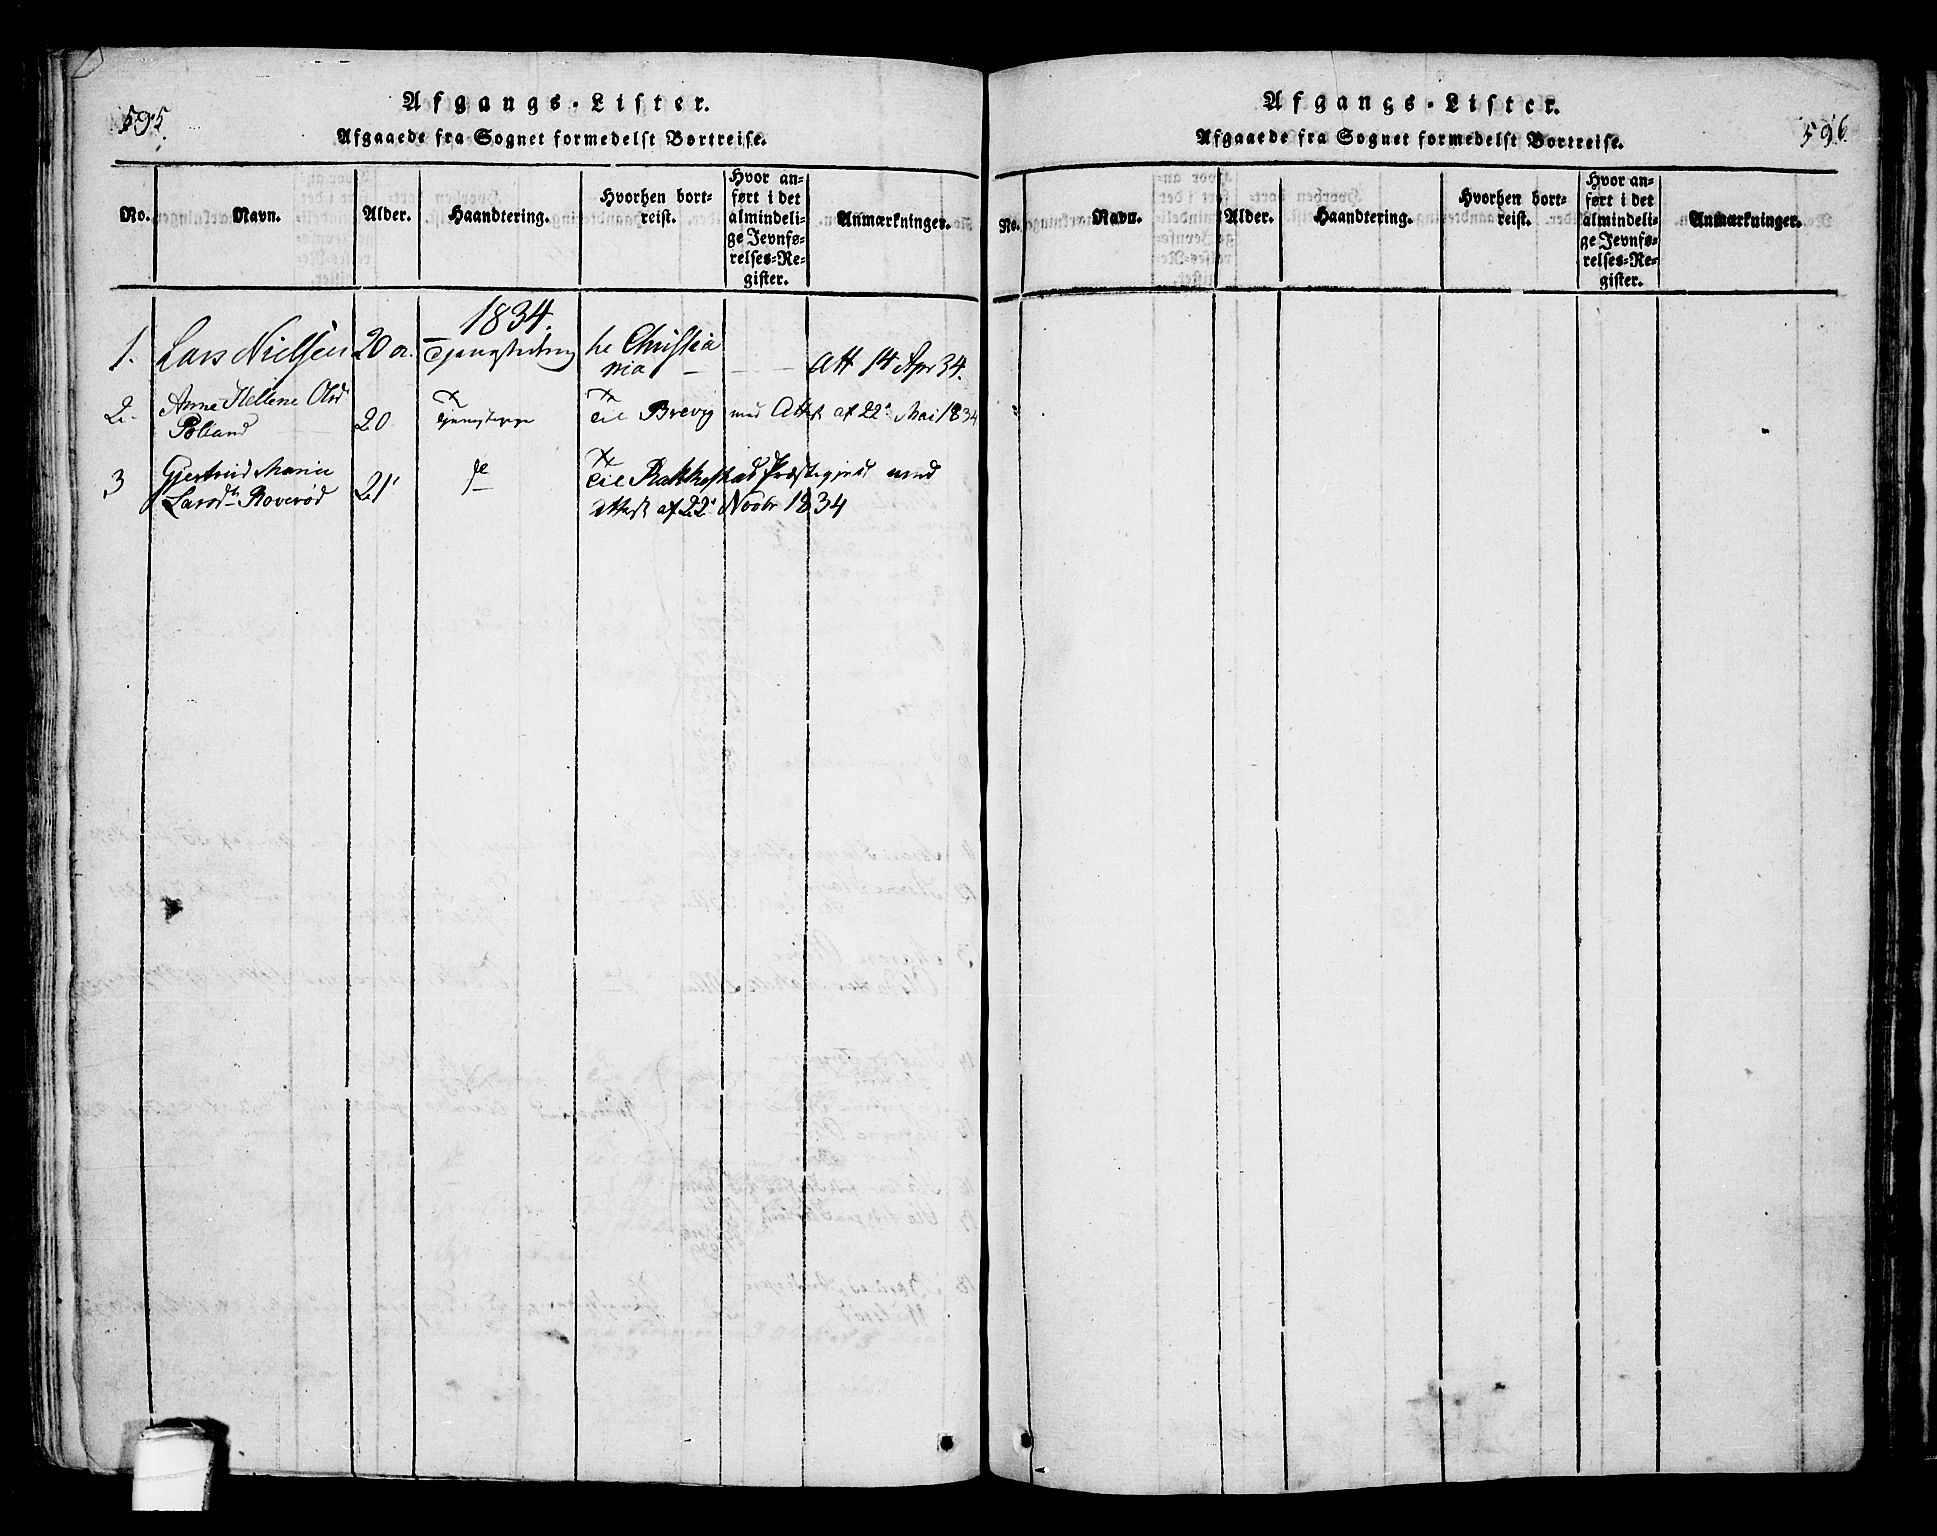 595.
Afgangs-Lister.
Afgaaede fra Sognet formedelst Bortreise.
No. Navn. Alder. Haandtering. Hvorhen bortreist. Hvor anført i det almindelige Jevnførelses-Register. Anmærkninger.
1834.
1. Lars Nielsen 20 a. Christiania Att 14 Apr 34.
2. Anne Hellene Olsd
Polland 20 Til Brevig med Attest af 22 Mai 1834
3 Gjertrud Maria
Larsd Roverød 21 d Til Præstegjeld med
Attest af 22 Novbr 1834
596.
Afgangs-Lister.
Afgaaede fra Sognet formedelst Bortreise.
No. Navn. Alder. Haandtering. Hvorhen bortreist. Hvor anført i det almindelige Jevnførelses-Register. Anmærkninger.